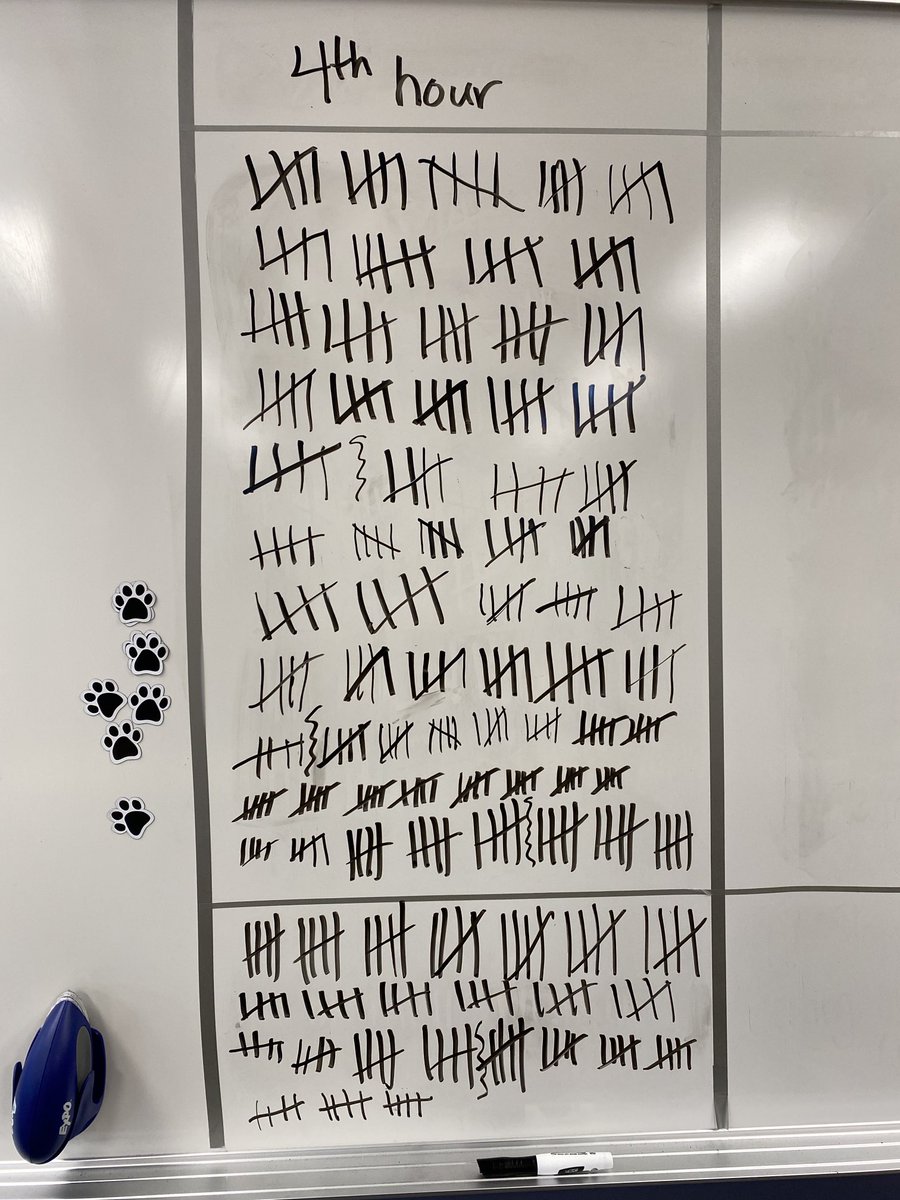 4th hour
EXPO